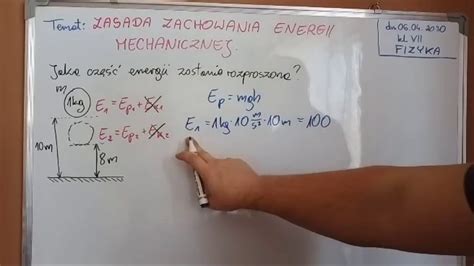 Temat: ZASADA ZACHOWANIA ENERGII
MECHANICZNEJ
dn 06.04.2020
kl. VII
FIZYKA
Jaka część energii zostanie rozproszona?
m
1kg
E₁ = Eₚ₁ + Eₖ₁
E₂ = Eₚ₂ + Eₖ₂
10m
8m
Eₚ = mgh
E₁ = 1kg · 10 m/s² · 10m = 100